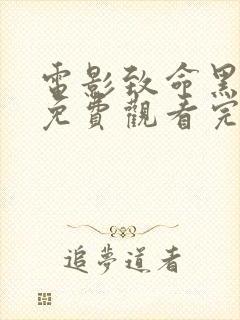 電影致命黑
免費觀看完
追夢道者